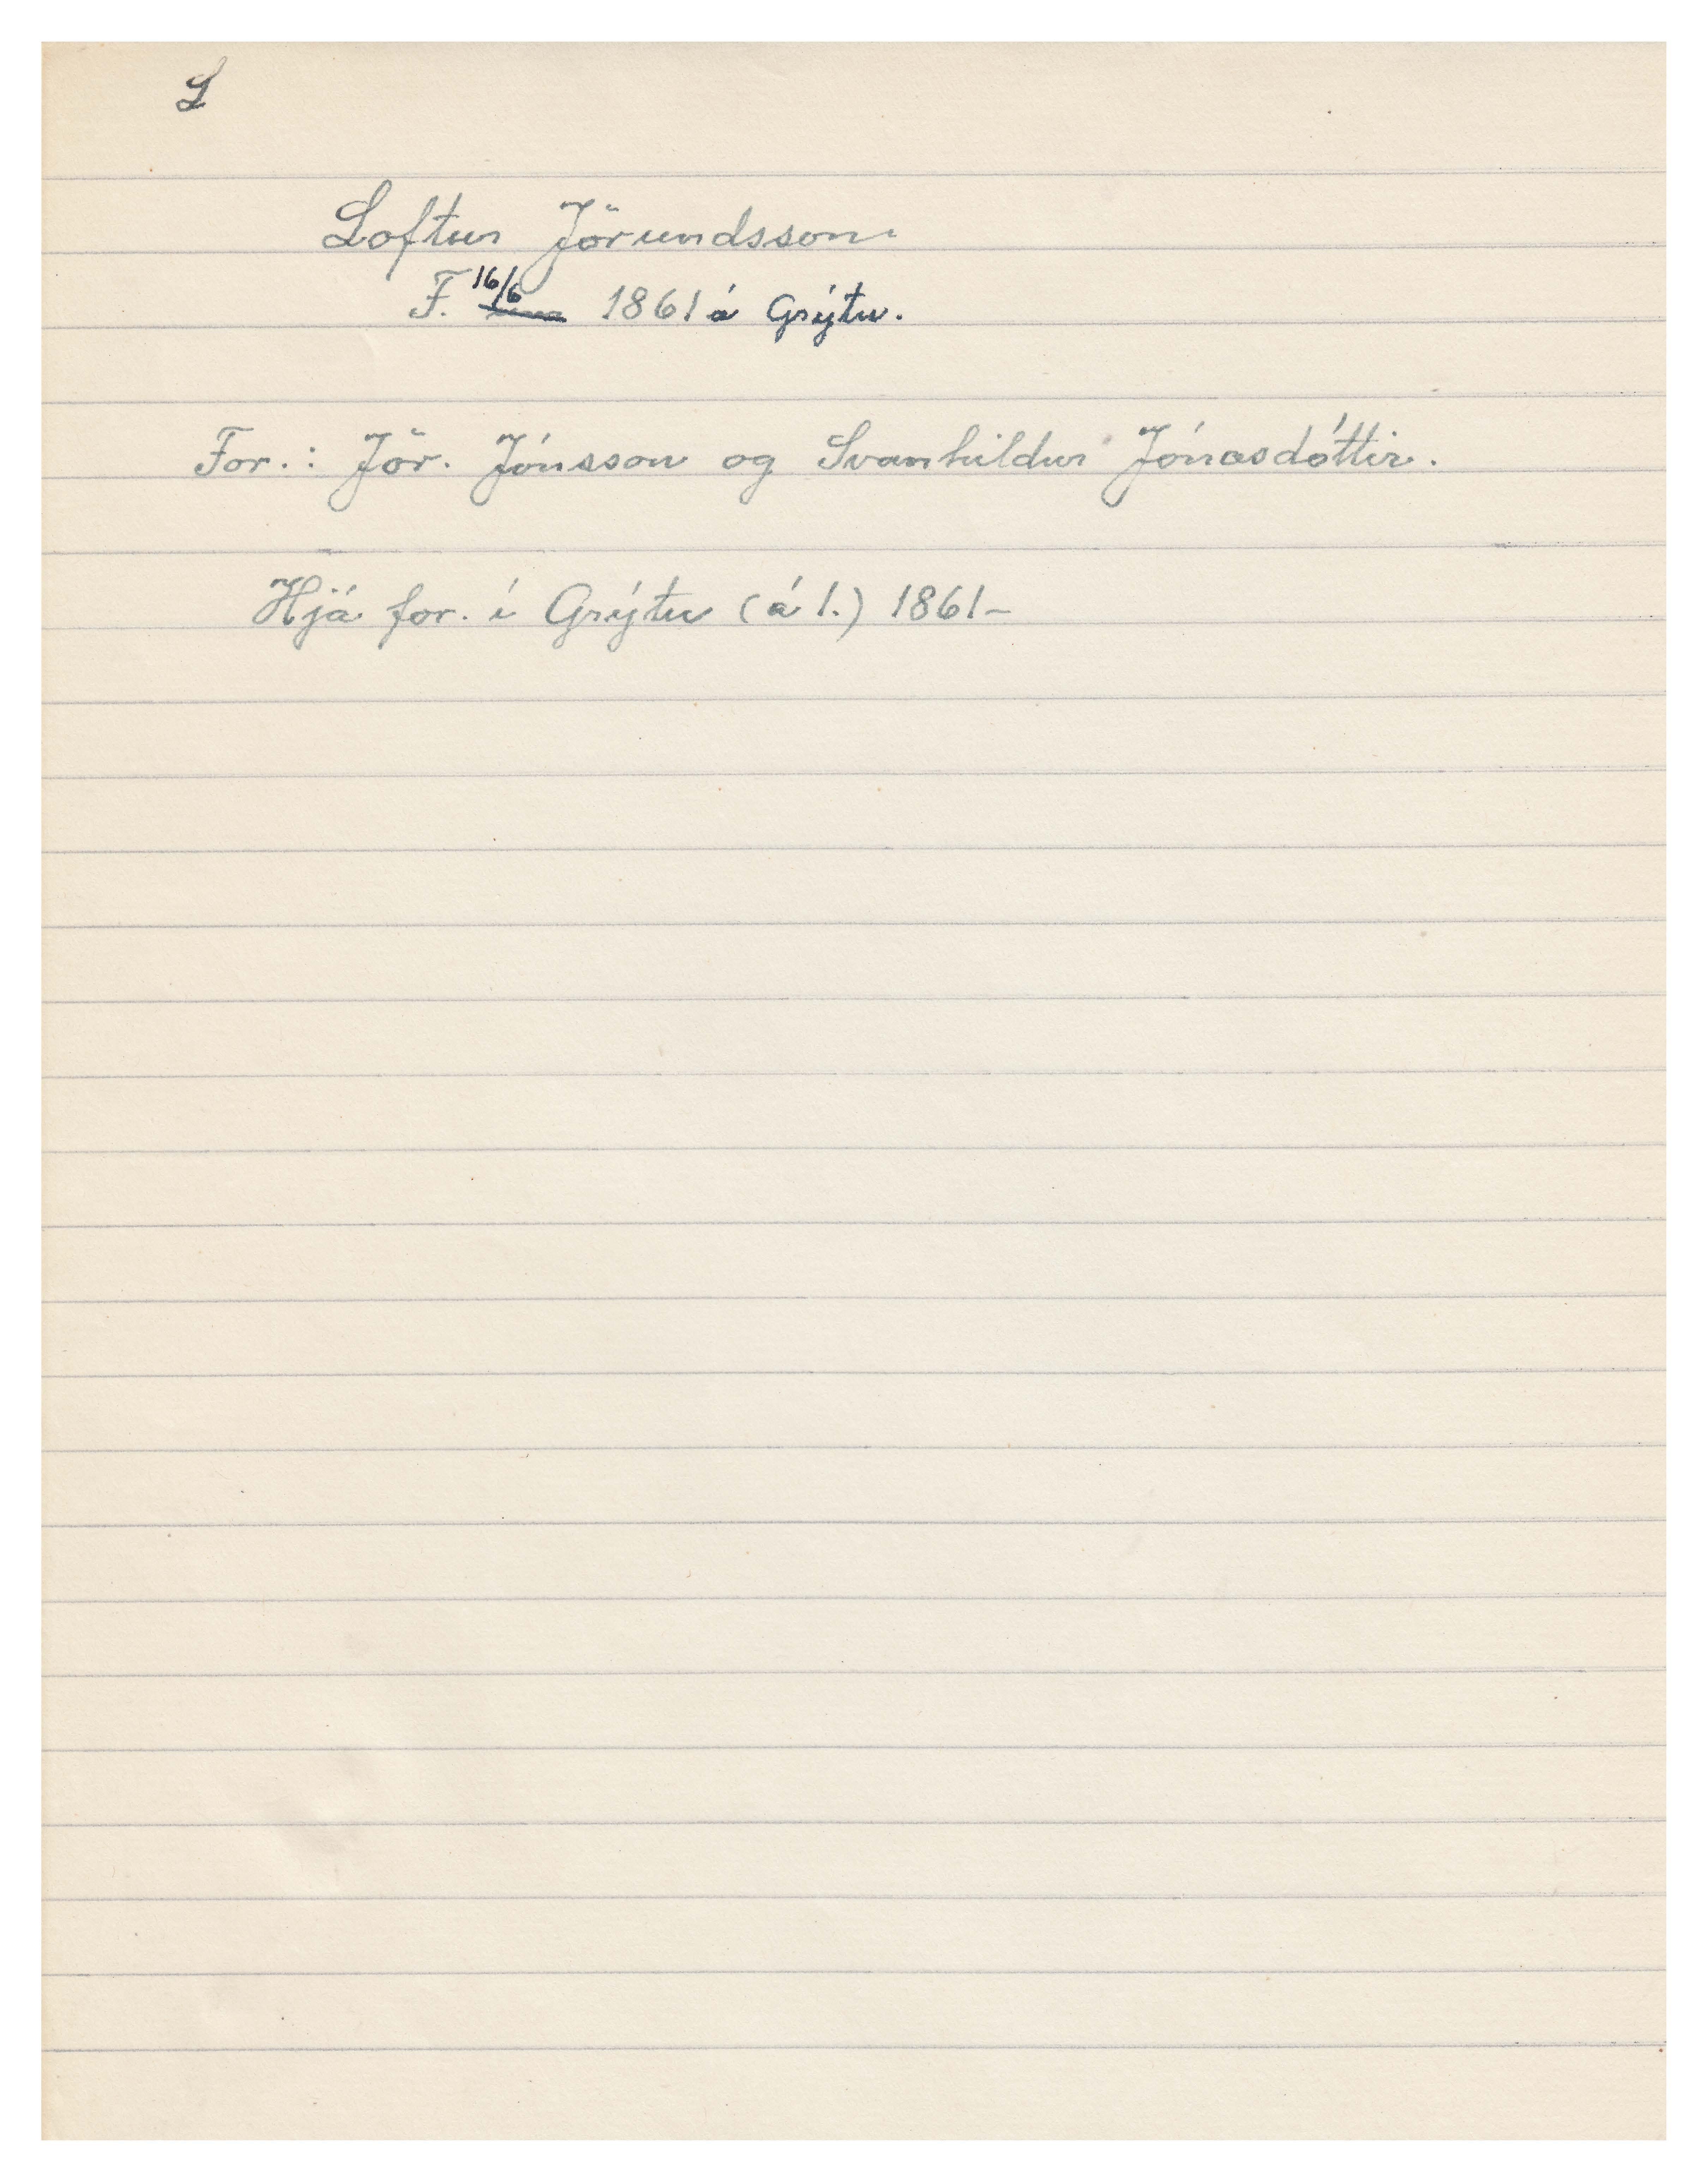 L
Loftur Jörundsson.
F. 16/6 1861 á Grýtu.
For.: Jör. Jónsson og Svanhildur Jónasdóttir.
Hjá for. í Grýtu (á 1.) 1861-